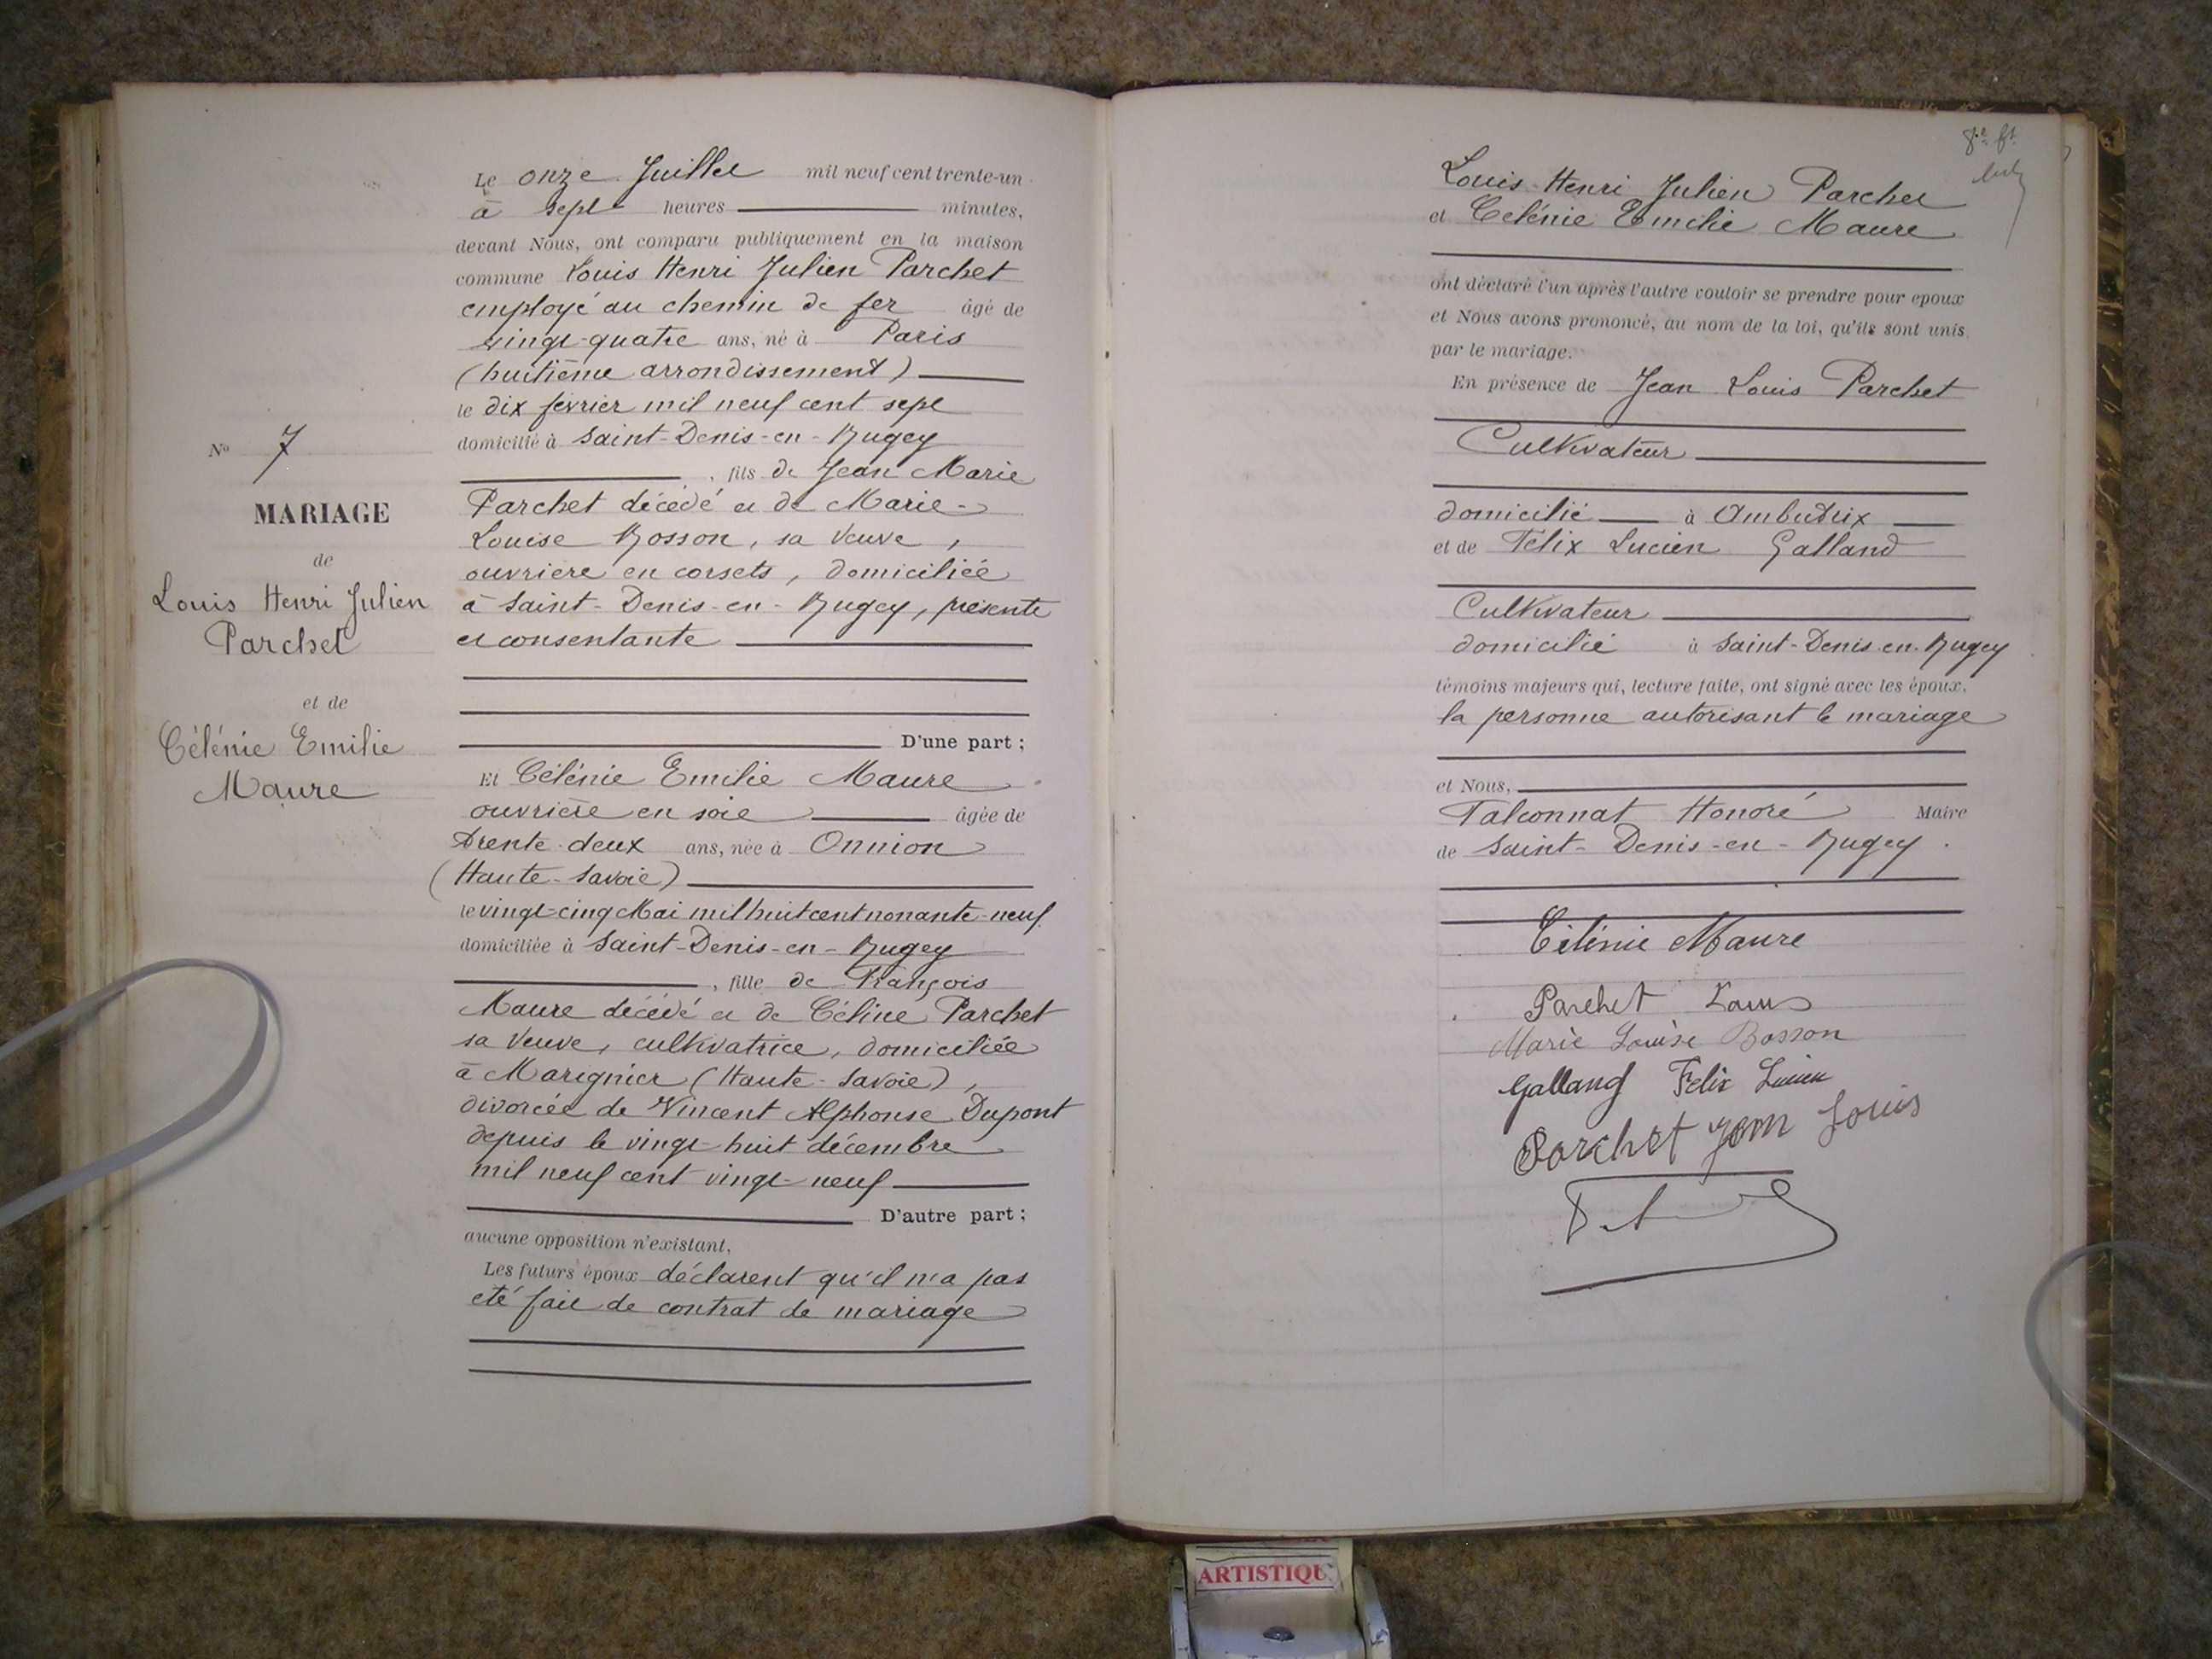 N° 7
MARIAGE
de
Louis Henri Julien
Parchet
et de
Célénie Emilie
Maure
Le onze Juillet mil neuf cent trente-un
à sept heures minutes,
devant Nous, ont comparu publiquement en la maison
commune Louis Henri Julien Parchet
employé au chemin de fer âgé de
vingt-quatre ans, né à Paris
(huitième arrondissement)
le dix février mil neuf cent sept
domicilié à Saint-Denis-en-Bugey
, fils de Jean Marie
Parchet décédé et de Marie-
Louise Bosson, sa veuve,
ouvrière en corsets, domiciliée
à Saint-Denis-en-Bugey, présente
et consentante
D'une part ;
Et Célénie Emilie Maure
ouvrière en soie âgée de
trente-deux ans, née à Onnion
(Haute-Savoie)
le vingt-cinq Mai mil huit cent nonante-neuf
domiciliée à Saint-Denis-en-Bugey
, fille de François
Maure décédé et de Céline Parchet
sa veuve, cultivatrice, domiciliée
à Marignier (Haute-Savoie),
divorcée de Vincent Alphonse Dupont
depuis le vingt-huit décembre
mil neuf cent vingt-neuf
D'autre part ;
aucune opposition n'existant,
Les futurs époux déclarent qu'il n'a pas
été fait de contrat de mariage
Louis Henri Julien Parchet
et Célénie Emilie Maure
ont déclaré l'un après l'autre vouloir se prendre pour époux
et Nous avons prononcé, au nom de la loi, qu'ils sont unis
par le mariage.
En présence de Jean Louis Parchet
Cultivateur
domicilié à Ambutrix
et de Félix Lucien Galland
Cultivateur
domicilié à Saint-Denis-en-Bugey
témoins majeurs qui, lecture faite, ont signé avec les époux,
la personne autorisant le mariage
et Nous,
Falconnat Honoré Maire
de Saint-Denis-en-Bugey.
Célénie Maure
Parchet Louis
Marie Louise Bosson
Galland Felix Lucien
Parchet Jean Louis
ARTISTIQU